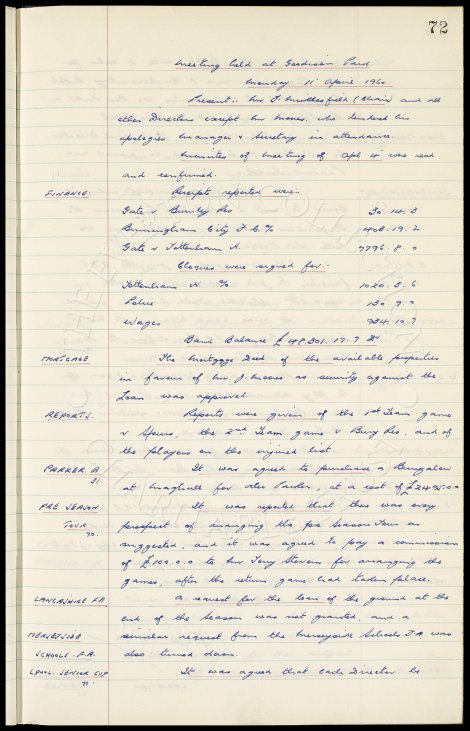 72
Meeting held at Goodison Park
Monday 11 April 1960
Present:- Mr F. Micklesfield (Chair) and all
other Directors except Mr Moores, who tendered his
apologies. Manager & Secretary in attendance.
Minutes of Meeting of Apl 4 were read
and confirmed.
FINANCE. Receipts reported were:-
Gate v Burnley Res 30.14.3
Birmingham City F.C. % 408.19.2
Gate v Tottenham H. 7796.8.0
Cheques were signed for:-
Tottenham H. % 1020.3.6
Police 130.9.0
Wages 934.10.7
Bank Balance £48,301.17.7 Dr
MORTGAGE The Mortgage Deed of the available properties
in favour of Mr J. Moores as security against the
Loan was approved.
REPORTS. Reports were given of the 1st Team game
v Spurs, the 2nd Team game v Bury Res, and of
the players on the injured list.
PARKER. A It was agreed to purchase a Bungalow
at Maghull for Alec Parker, at a cost of £2495.0.0
PRE SEASON It was reported that there was every
TOUR prospect of arranging the pre Season Tour as
suggested, and it was agreed to pay a commission
of £100.0.0 to Mr Tony Stevens for arranging the
games, after the return game had taken place.
LANCASHIRE F.A. A request for the loan of the ground at the
end of the Season was not granted, and a
MERSEYSIDE similar request from the Merseyside Schools F.A. was
SCHOOLS. F.A. also turned down.
LPOOL. SENIOR CUP It was agreed that each Director be